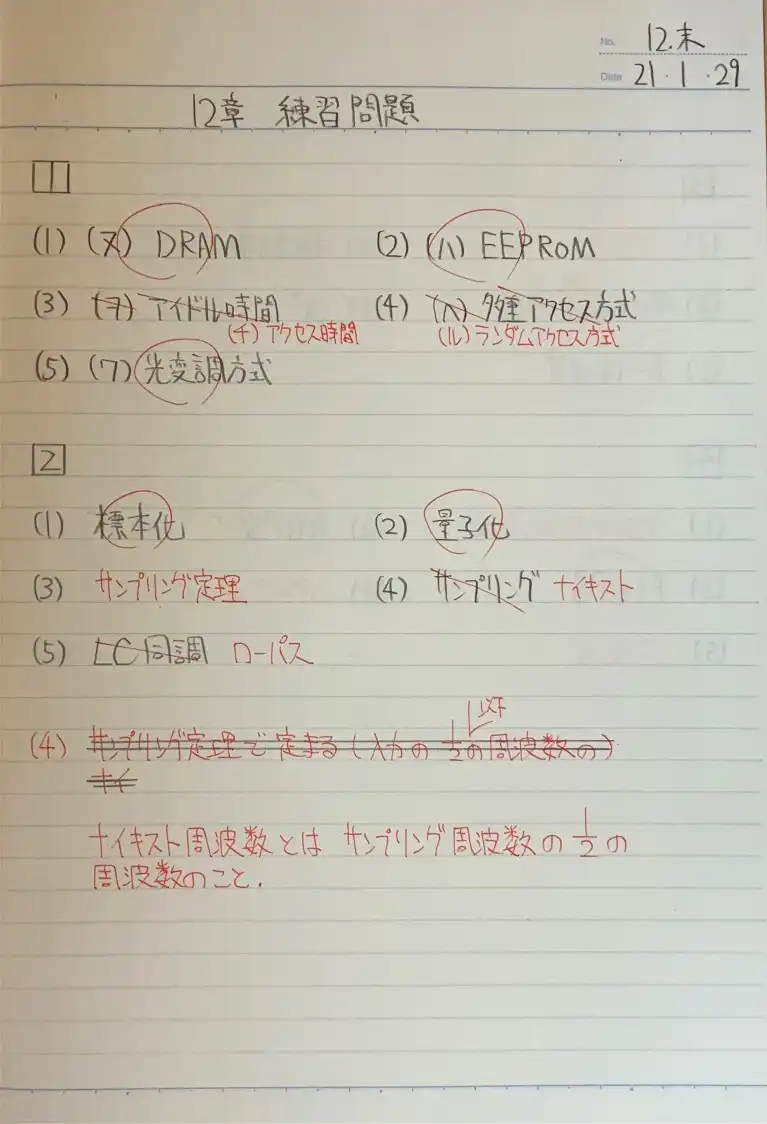 No. 12.末
Date 21・1・29
12章 練習問題
1
(1) (ヌ) DRAM (2) (ハ) EEPROM
(3) (ヲ) アイドル時間 (4) (ヘ) 多重アクセス方式
(チ) アクセス時間 (ル) ランダムアクセス方式
(5) (ワ) 光変調方式
2
(1) 標本化 (2) 量子化
(3) サンプリング定理 (4) サンプリング ナイキスト
(5) LC同調 ローパス
以下
(4) サンプリング定理で定まる(入力の1/2の周波数の)
キイ
ナイキスト周波数とは サンプリング周波数の1/2の
周波数のこと.